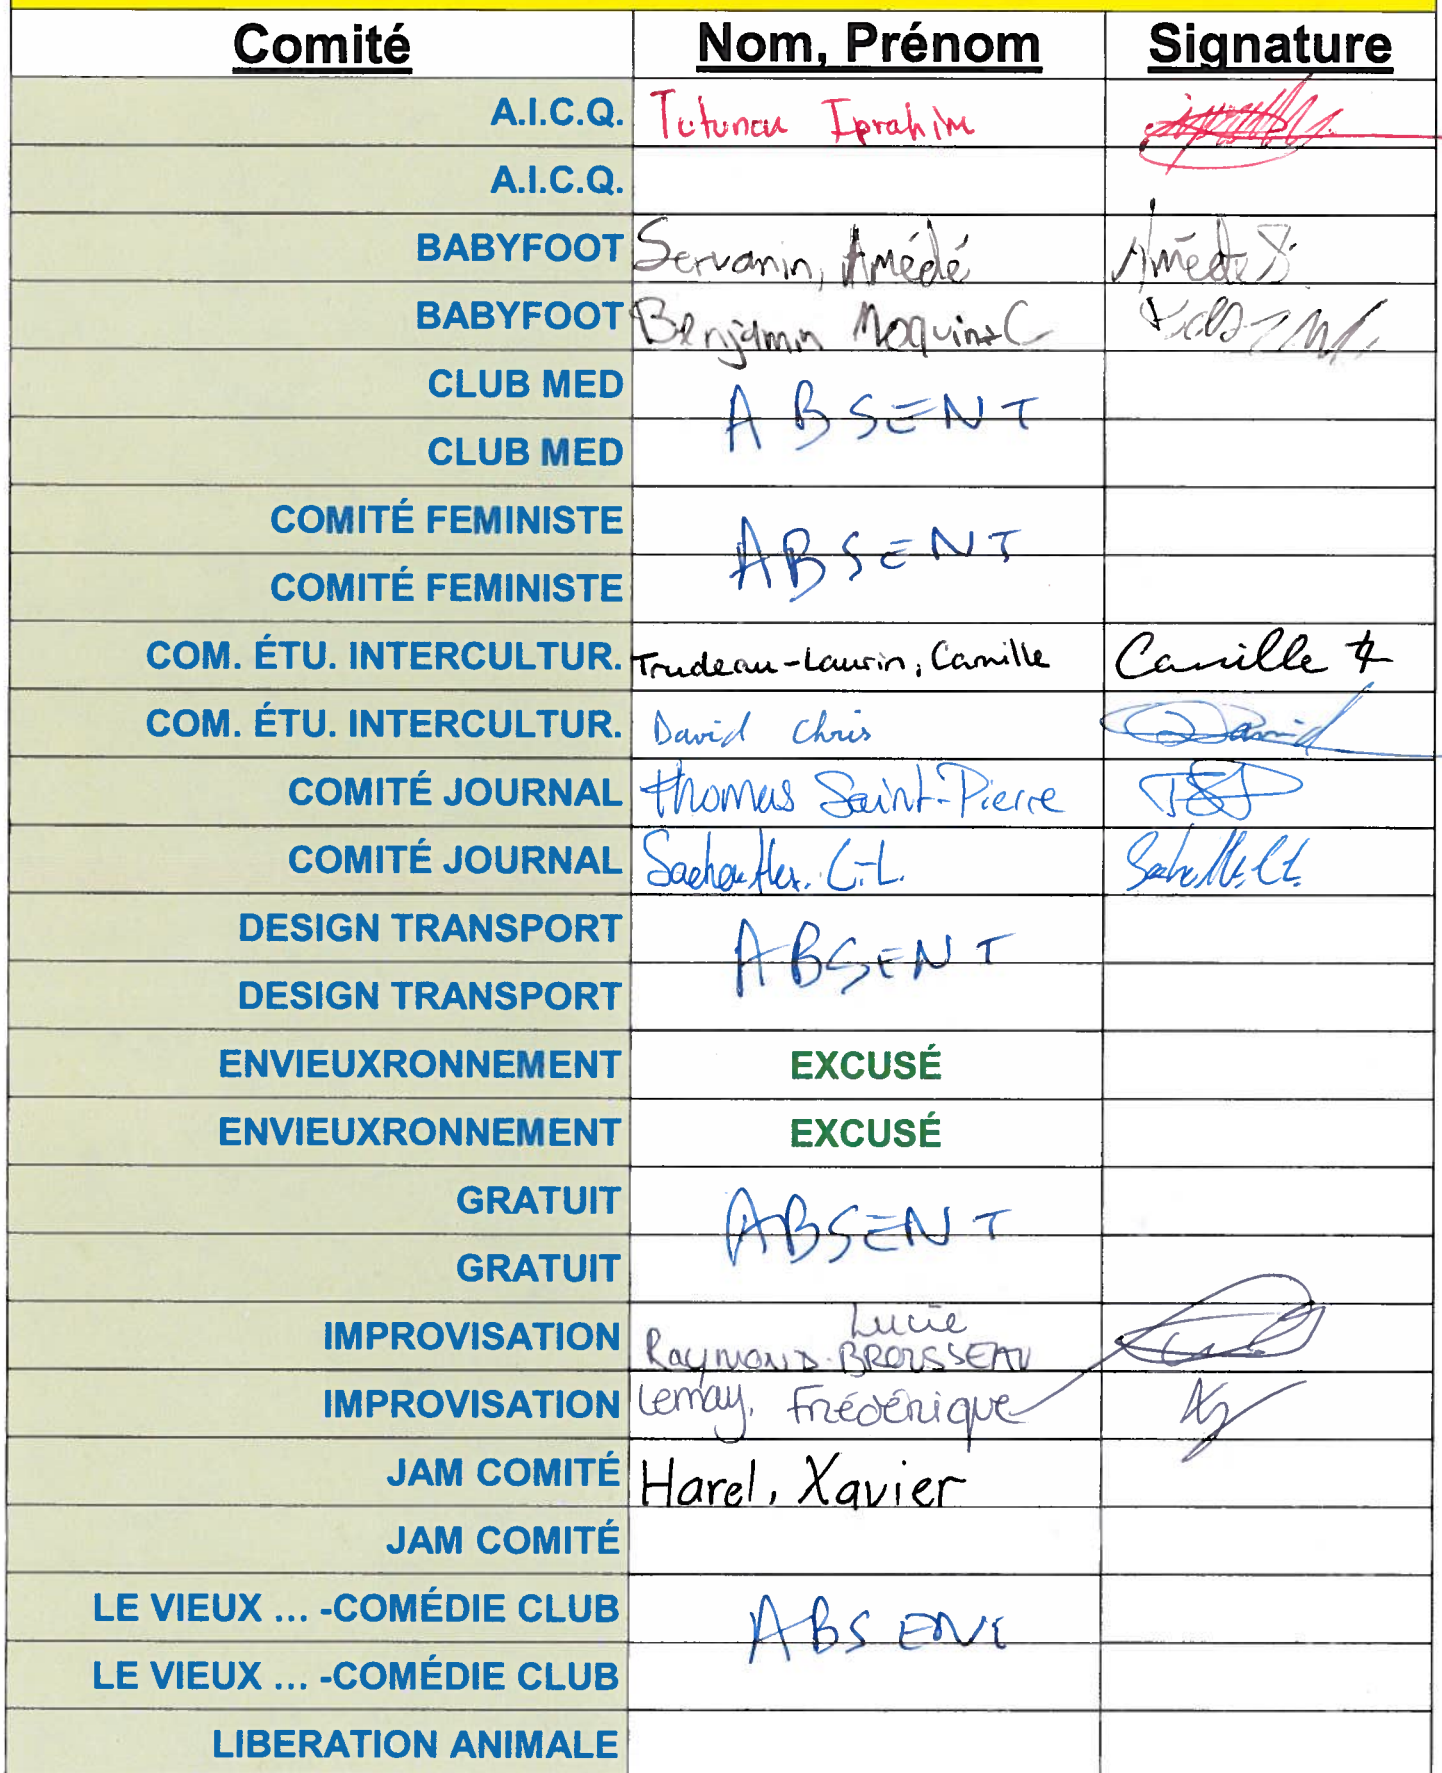 Comité Nom, Prénom Signature
A.I.C.Q. Tutuncu Iprahim
A.I.C.Q.
BABYFOOT Servanin, Amédé Amédé S.
BABYFOOT Benjamin Moquin C
CLUB MED ABSENT
CLUB MED
COMITÉ FEMINISTE ABSENT
COMITÉ FEMINISTE
COM. ÉTU. INTERCULTUR. Trudeau-Laurin, Camille Camille
COM. ÉTU. INTERCULTUR. David Chris David
COMITÉ JOURNAL Thomas Saint-Pierre TSP
COMITÉ JOURNAL C.-L.
DESIGN TRANSPORT ABSENT
DESIGN TRANSPORT
ENVIEUXRONNEMENT EXCUSÉ
ENVIEUXRONNEMENT EXCUSÉ
GRATUIT ABSENT
GRATUIT
IMPROVISATION Raymond-BROUSSEAU Lucie
IMPROVISATION Lemay, Frédérique
JAM COMITÉ Harel, Xavier
JAM COMITÉ
LE VIEUX ... -COMÉDIE CLUB ABSENT
LE VIEUX ... -COMÉDIE CLUB
LIBERATION ANIMALE